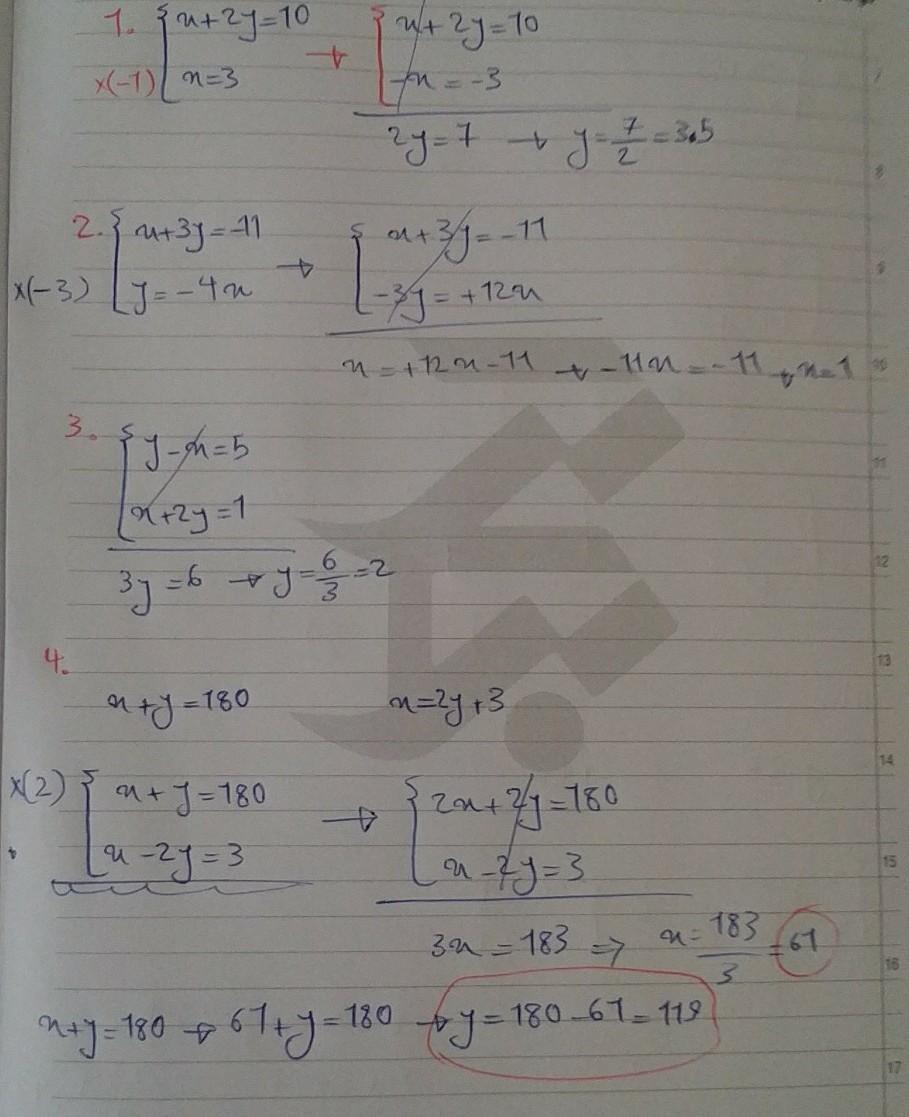 1. { x+2y=10 → { x+2y=10
×(-1) x=3 -x=-3
2y=7 → y=7/2=3.5
2. { x+3y=-11 → { x+3y=-11
×(-3) y=-4x -3y=+12x
x=+12x-11 → -11x=-11 → x=1
3. { y-x=5
x+2y=1
3y=6 → y=6/3=2
4.
x+y=180 x=2y+3
×(2) { x+y=180 → { 2x+2y=180
x-2y=3 x-2y=3
3x=183 ⇒ x=183/3=61
x+y=180 → 61+y=180 → y=180-61=119
7
8
9
10
11
12
13
14
15
16
17